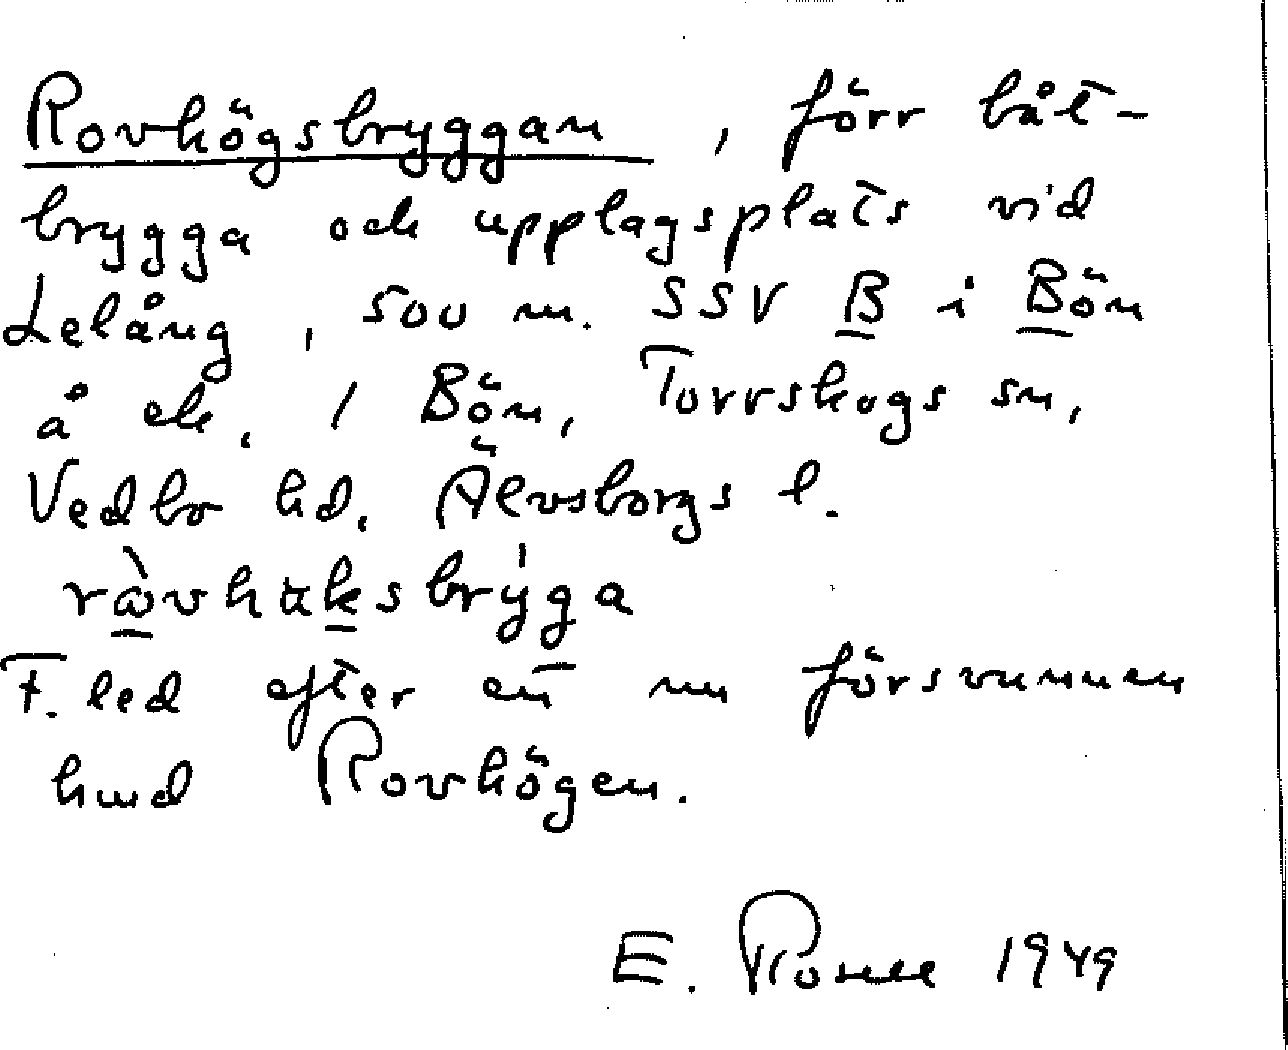 Rovhögsbryggan, förr båt-
brygga och upplagsplats vid
Lelång, 500 m. SSV B i Bön
å ek. 1 Bön, Torrskogs sn,
Vedbo hd. Älvsborgs l.
F. led efter en nu försvunnen
hmd Rovhögen.
E. 1949